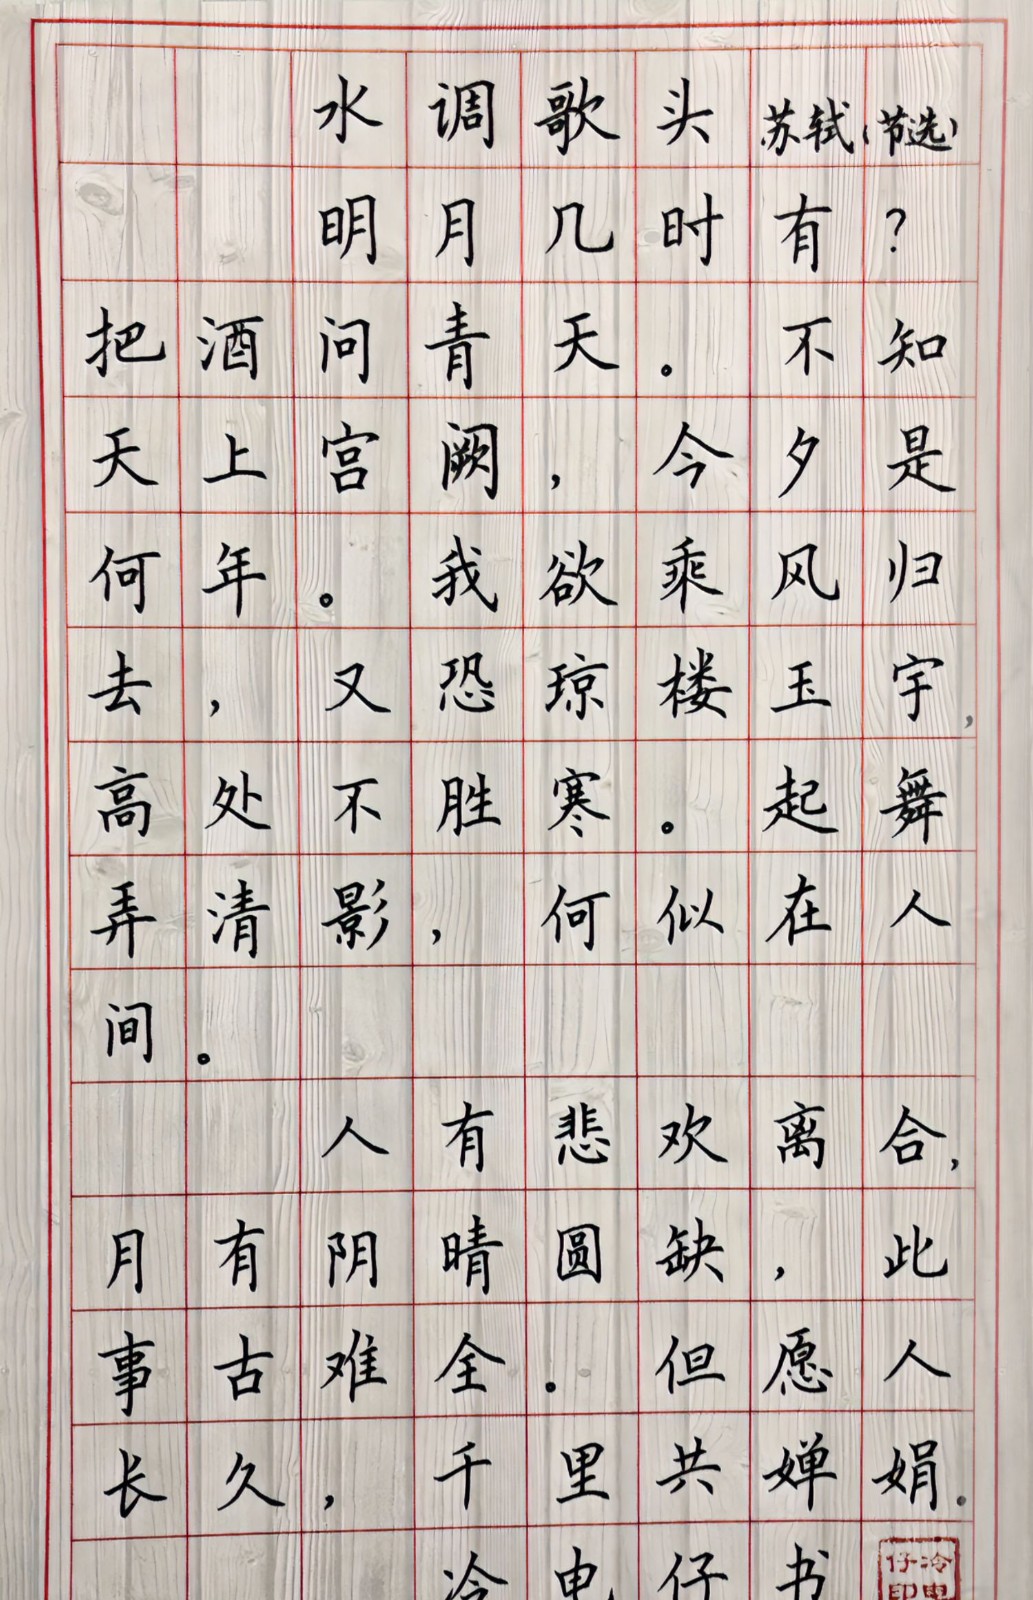 水调歌头 苏轼(节选)
明月几时有?
把酒问青天。不知
天上宫阙,今夕是
何年。我欲乘风归
去,又恐琼楼玉宇,
高处不胜寒。起舞
弄清影,何似在人
间。
人有悲欢离合,
月有阴晴圆缺,此
事古难全。但愿人
长久,千里共婵娟。
冷电仔书
冷电
仔印